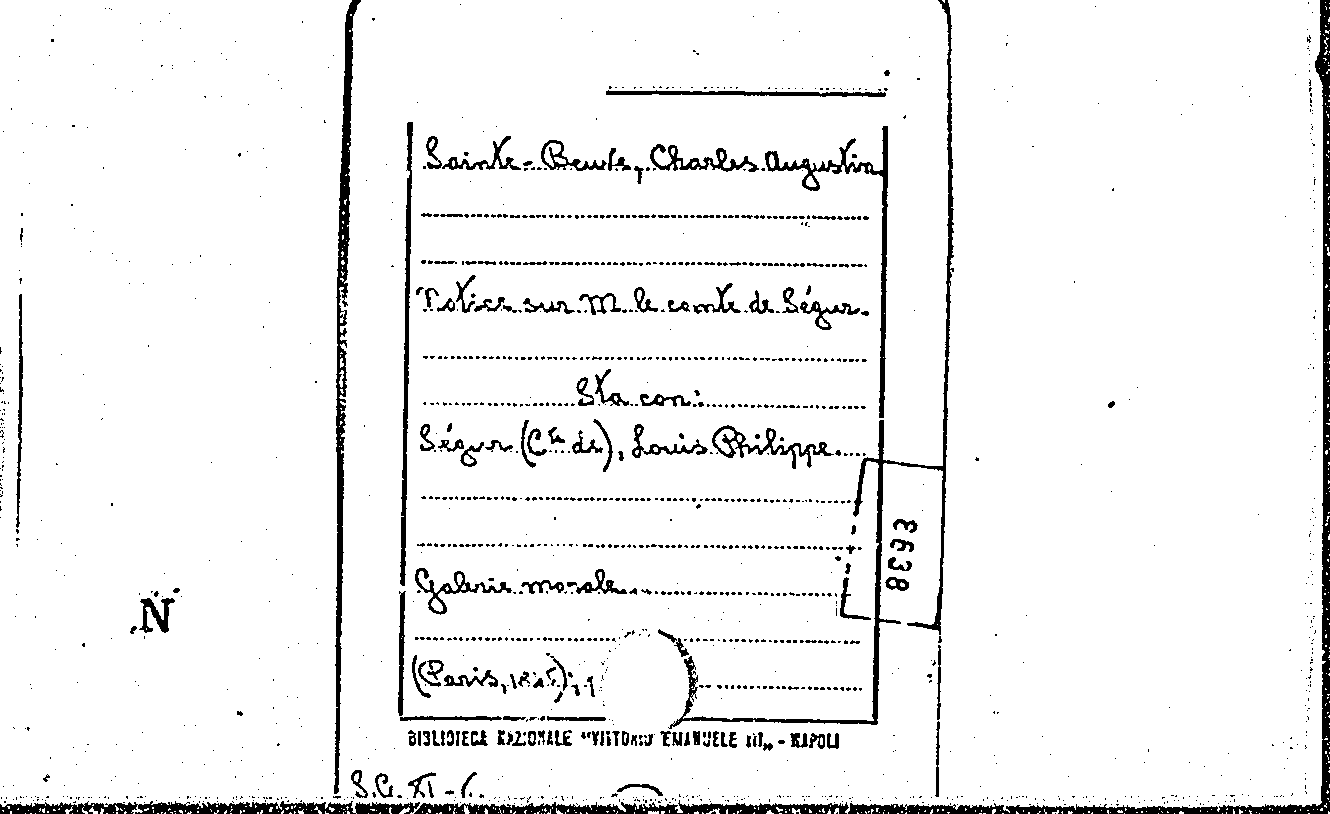 Sainte-Beuve, Charles Augustin
Notice sur M le comte de Ségur.
Sta con:
Ségur (Cte de), Louis Philippe.
3938
Galerie morale.
N
(Paris,
BIBLIOTECA NAZIONALE "VITTORIO EMANUELE III" - NAPOLI
S.G. XI -